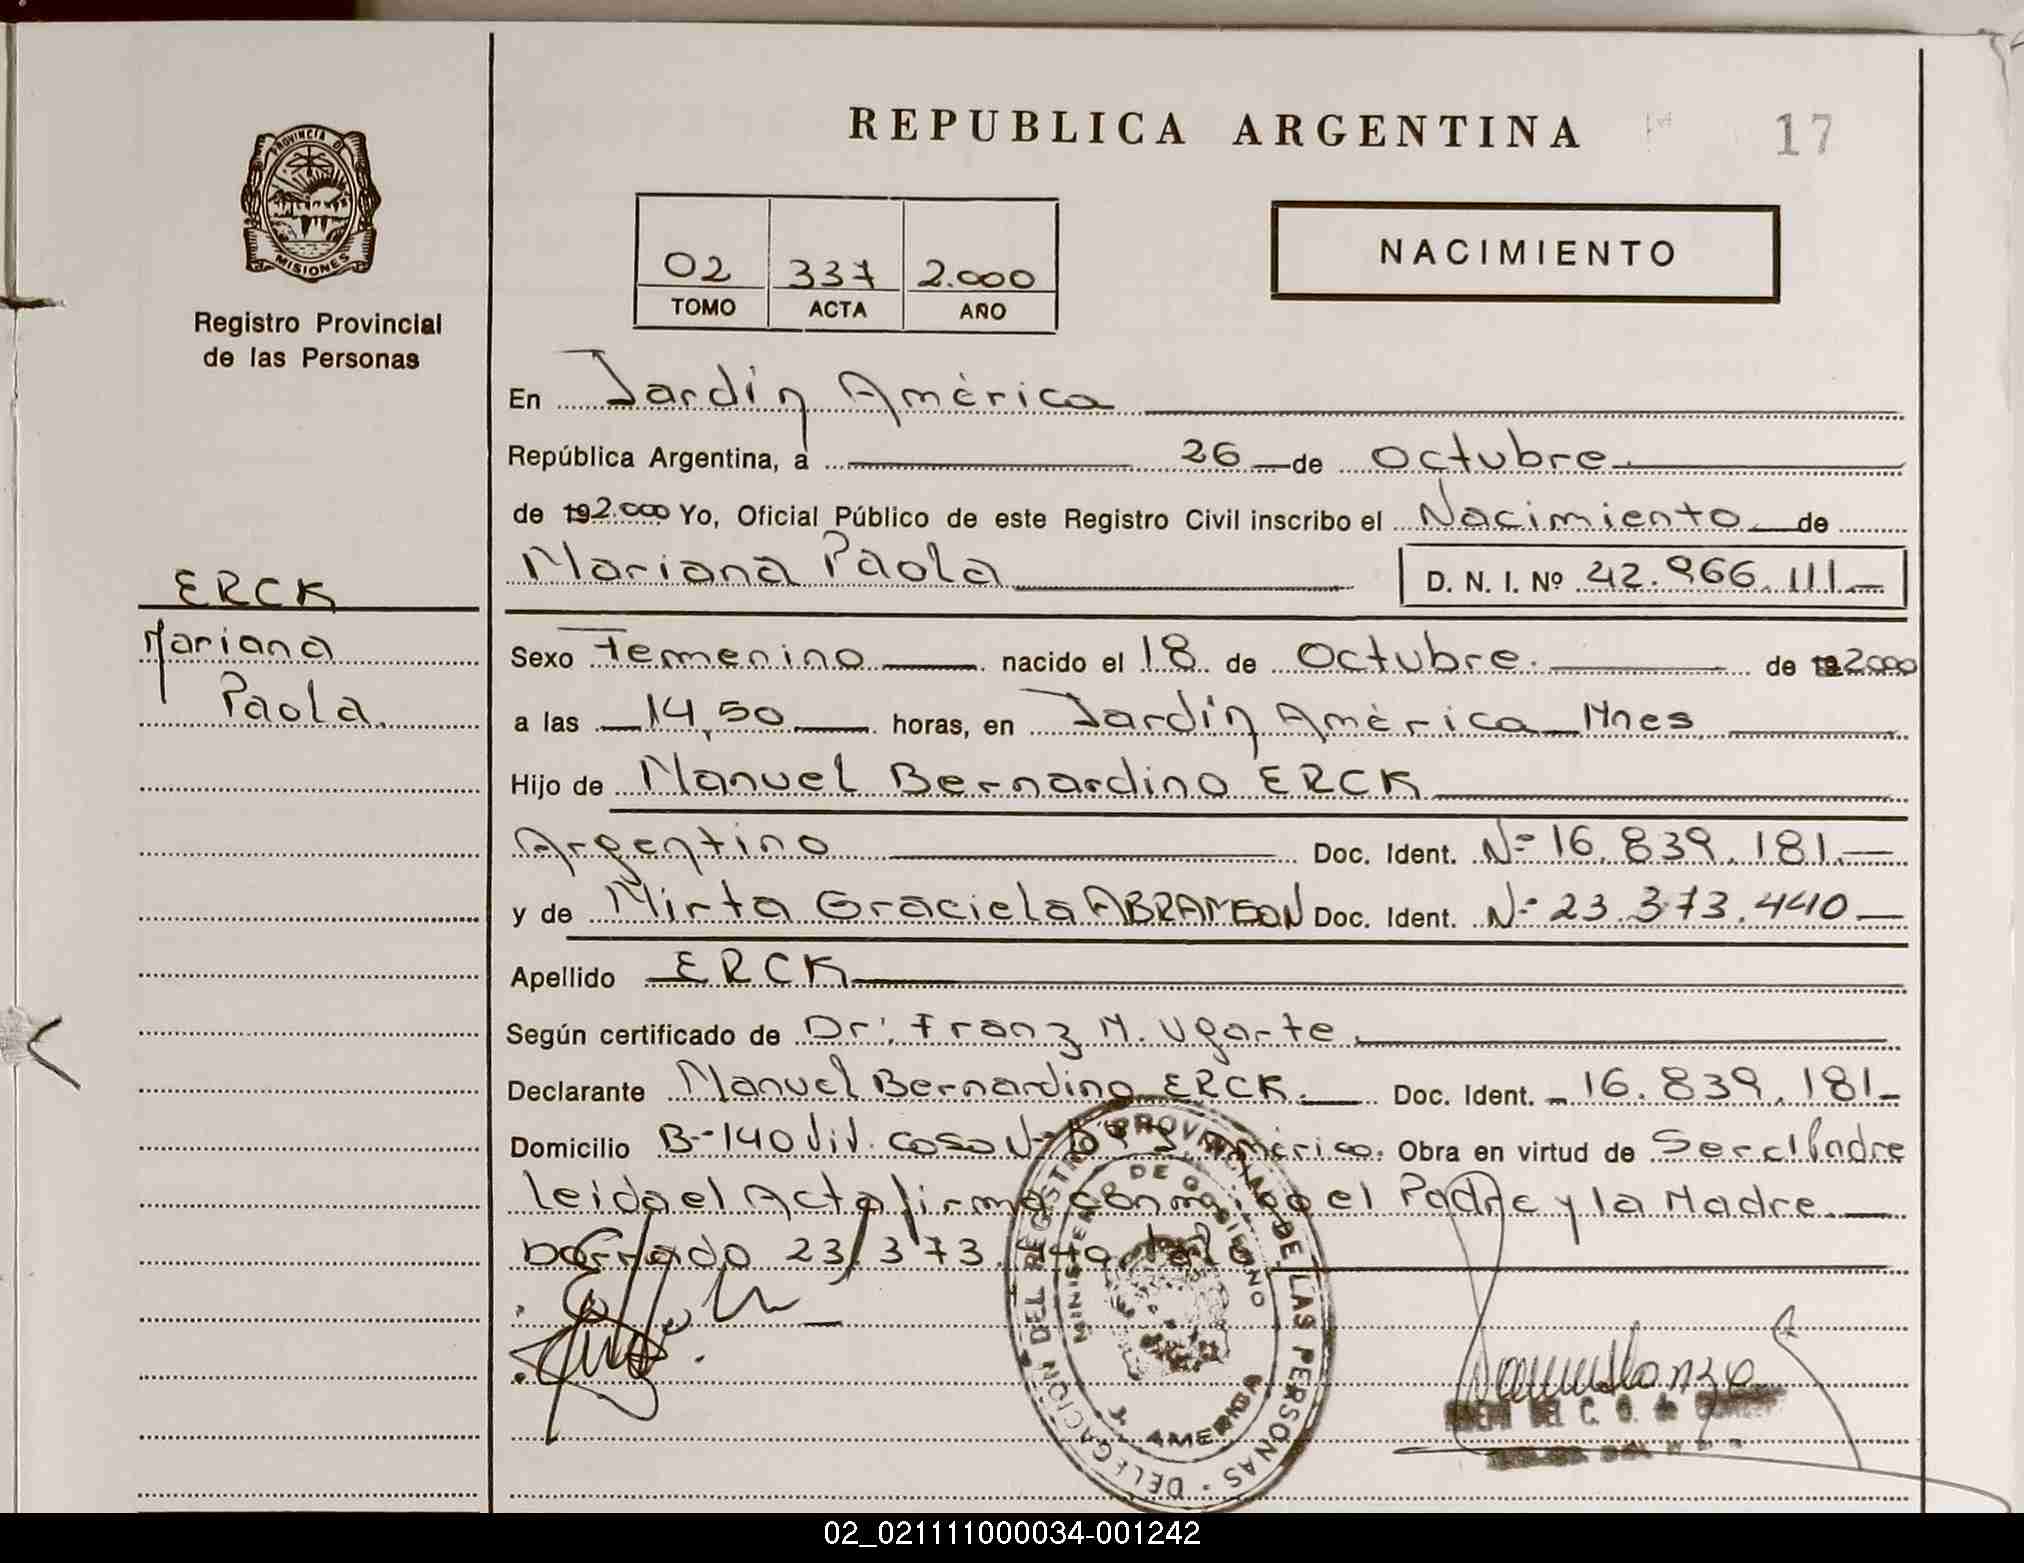 REPUBLICA ARGENTINA
17
PROVINCIA DE
MISIONES
Registro Provincial
de las Personas
02 337 2.000
TOMO ACTA AÑO
NACIMIENTO
En Jardín América
República Argentina, a 26 de Octubre
de 192.000 Yo, Oficial Público de este Registro Civil inscribo el Nacimiento de
Mariana Paola D. N. I. Nº 42.966.111.-
ERCK
Mariana
Paola.
Sexo Femenino nacido el 18 de Octubre. de 192000
a las 14,50 horas, en Jardín América Mnes
Hijo de Manuel Bernardino ERCK
Argentino Doc. Ident. Nº 16.839.181.-
y de Mirta Graciela ABRAMSON Doc. Ident. Nº 23.373.440
Apellido ERCK
Según certificado de Dr: Franz M. Ugarte
Declarante Manuel Bernardino ERCK. Doc. Ident. 16.839.181-
Domicilio B-140 viv. casa Nº América. Obra en virtud de Ser el Padre
leida el Acta firma conmigo el Padre y la Madre.
borrado 23.373.440 vale
DELEGACIÓN DEL REGISTRO PROVINCIAL DE LAS PERSONAS
MINISTERIO DE GOBIERNO
J. AMERICA
02_021111000034-001242